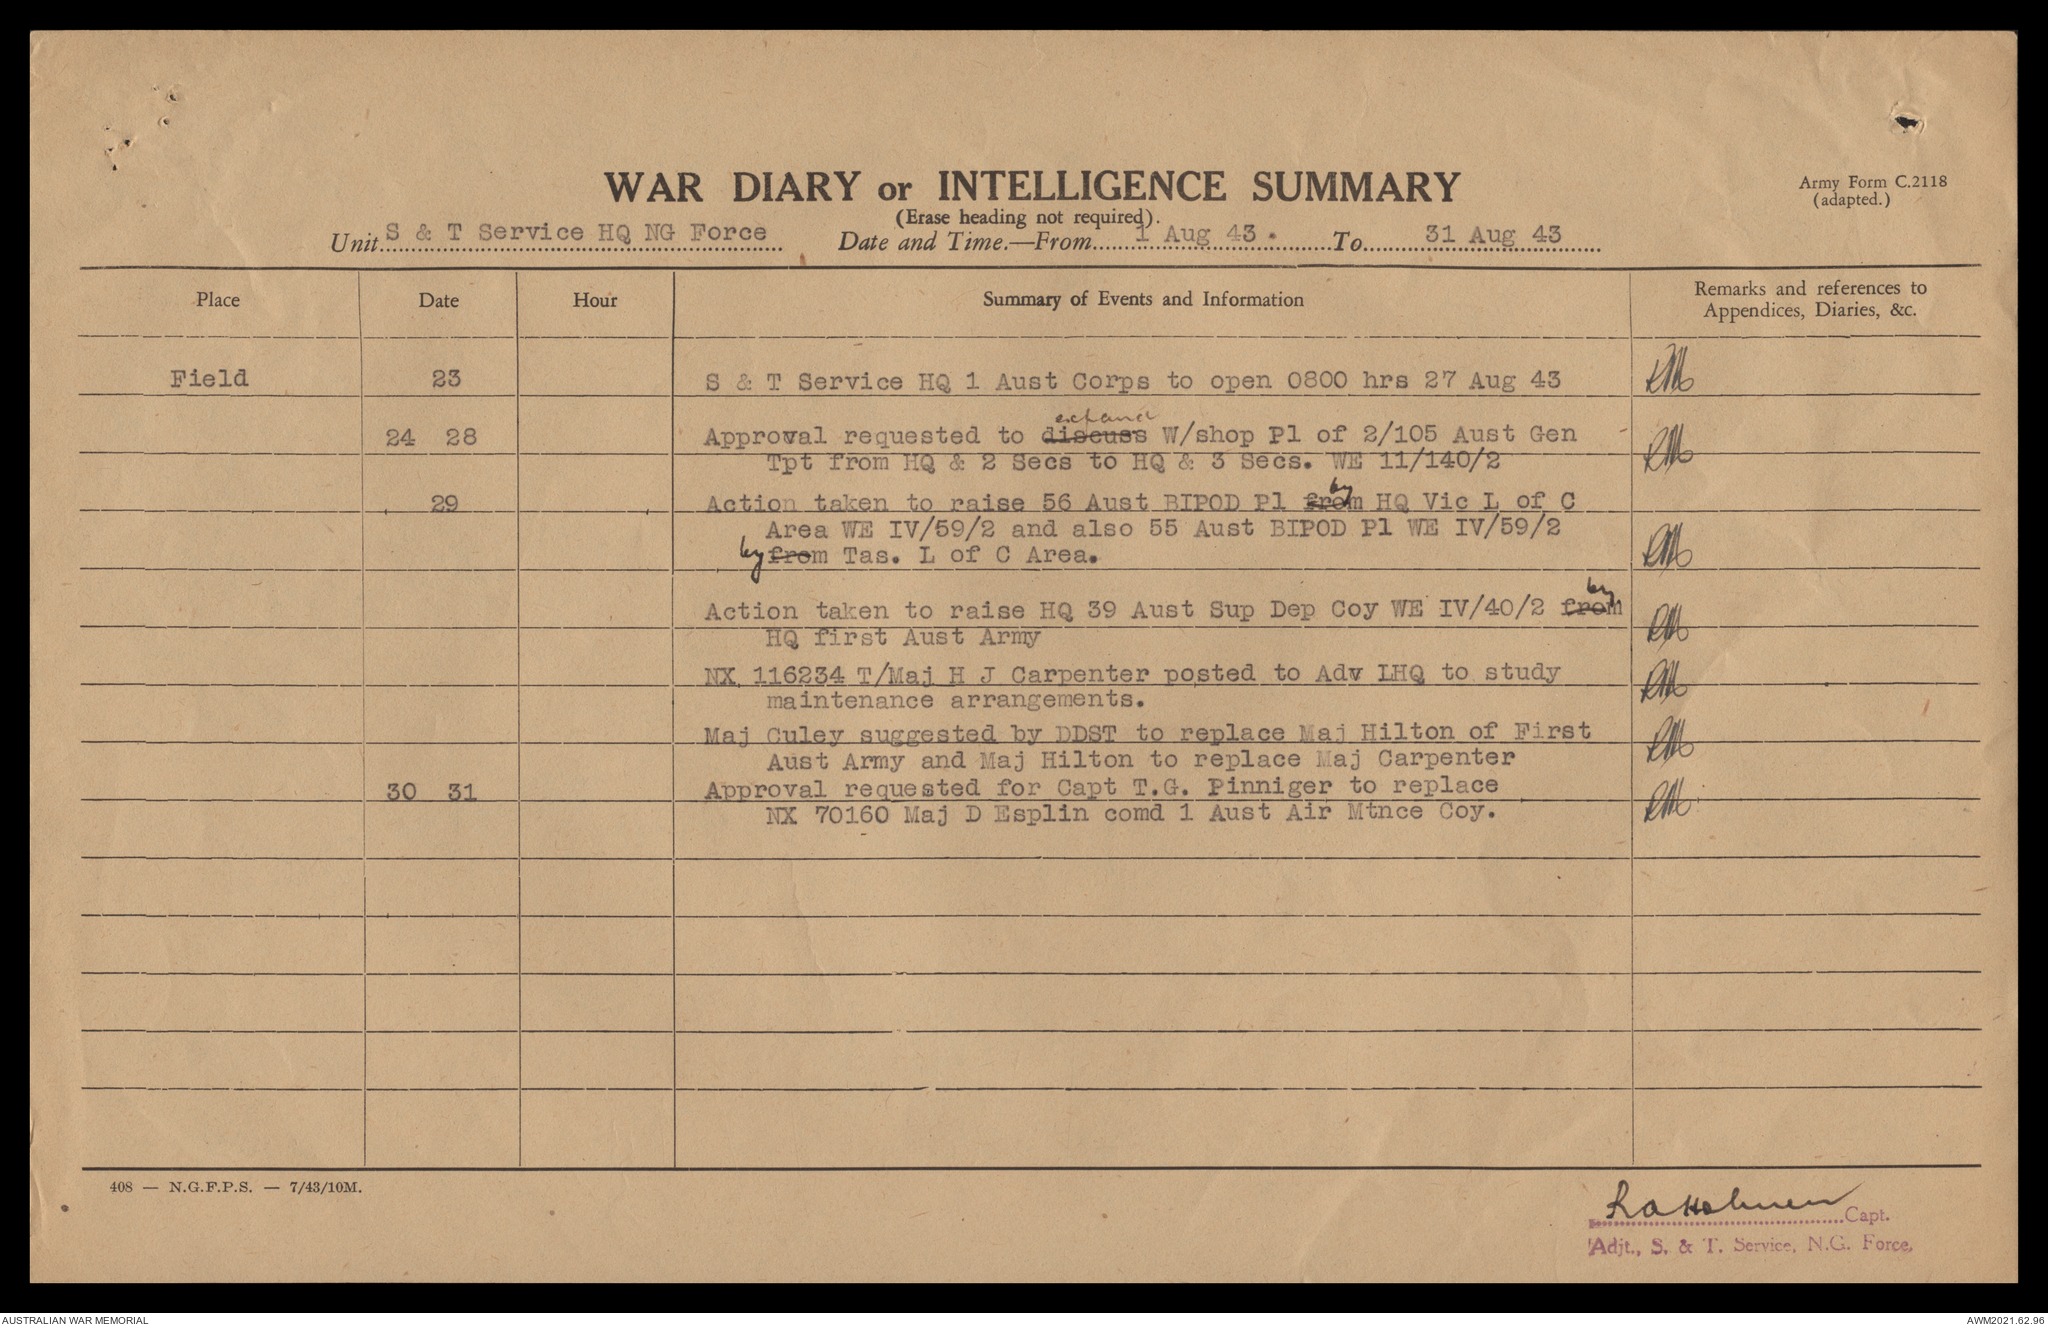 WAR DIARY or INTELLIGENCE SUMMARY
(Erase heading not required).
Army Form C.2118
(adapted.)
Unit S & T Service HQ NG Force Date and Time.—From 1 Aug 43. To 31 Aug 43
Place Date Hour Summary of Events and Information Remarks and references to
Appendices, Diaries, &c.
Field 23 S & T Service HQ 1 Aust Corps to open 0800 hrs 27 Aug 43
expand
24 28 Approval requested to discuss W/shop Pl of 2/105 Aust Gen
Tpt from HQ & 2 Secs to HQ & 3 Secs. WE 11/140/2
by
29 Action taken to raise 56 Aust BIPOD Pl from HQ Vic L of C
Area WE IV/59/2 and also 55 Aust BIPOD Pl WE IV/59/2
by from Tas. L of C Area.
by
Action taken to raise HQ 39 Aust Sup Dep Coy WE IV/40/2 from
HQ first Aust Army
NX 116234 T/Maj H J Carpenter posted to Adv LHQ to study
maintenance arrangements.
Maj Culey suggested by DDST to replace Maj Hilton of First
Aust Army and Maj Hilton to replace Maj Carpenter
30 31 Approval requested for Capt T.G. Pinniger to replace
NX 70160 Maj D Esplin comd 1 Aust Air Mtnce Coy.
408 — N.G.F.P.S. — 7/43/10M.
Capt.
Adjt., S. & T. Service, N.G. Force,
AUSTRALIAN WAR MEMORIAL
AWM2021.62.96